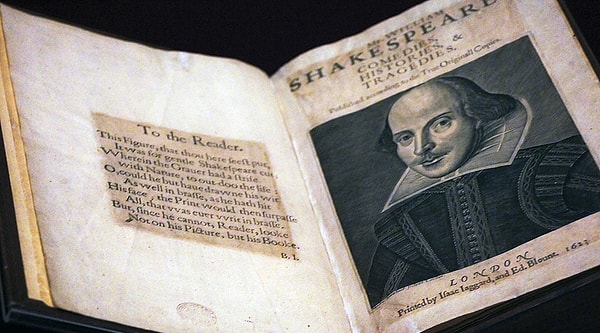 To the Reader.
This Figure, that thou here ſeeſt put,
It was for gentle Shakeſpeare cut,
Wherein the Grauer had a ſtrife
with Nature, to out-doo the life :
O, could he but haue drawne his wit
As well in braſſe, as he hath hit
His face, the Print would then ſurpaſſe
All, that vvas euer vvrit in braſſe.
But, ſince he cannot, Reader, looke
Not on his Picture, but his Booke.
B. I.
Mr. WILLIAM
SHAKESPEARES
COMEDIES,
HISTORIES, &
TRAGEDIES.
Published according to the True Originall Copies.
LONDON
Printed by Isaac Iaggard, and Ed. Blount. 1623